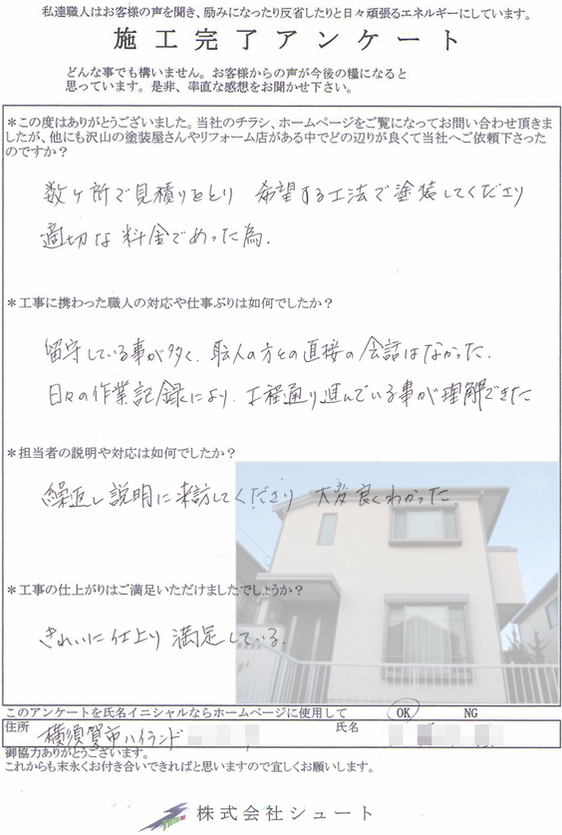 私達職人はお客様の声を聞き、励みになったり反省したりと日々頑張るエネルギーにしています。
施工完了アンケート
どんな事でも構いません。お客様からの声が今後の糧になると
思っています。是非、率直な感想をお聞かせ下さい。
＊この度はありがとうございました。当社のチラシ、ホームページをご覧になってお問い合わせ頂きま
したが、他にも沢山の塗装屋さんやリフォーム店がある中でどの辺りが良くて当社へご依頼下さった
のですか？
数ヶ所で見積りをとり 希望する工法で塗装してくださり
適切な料金であった為.
＊工事に携わった職人の対応や仕事ぶりは如何でしたか？
留守している事が多く、職人の方との直接の会話はなかった.
日々の作業記録により、工程通り進んでいる事が理解できた
＊担当者の説明や対応は如何でしたか？
繰返し説明に来訪してくださり 大変良くわかった
＊工事の仕上がりはご満足いただけましたでしょうか？
きれいに仕上り 満足している.
このアンケートを氏名イニシャルならホームページに使用して OK NG
住所 横須賀市ハイランド 氏名
御協力ありがとうございます。
これからも末永くお付き合いできればと思いますので宜しくお願いします。
株式会社シュート